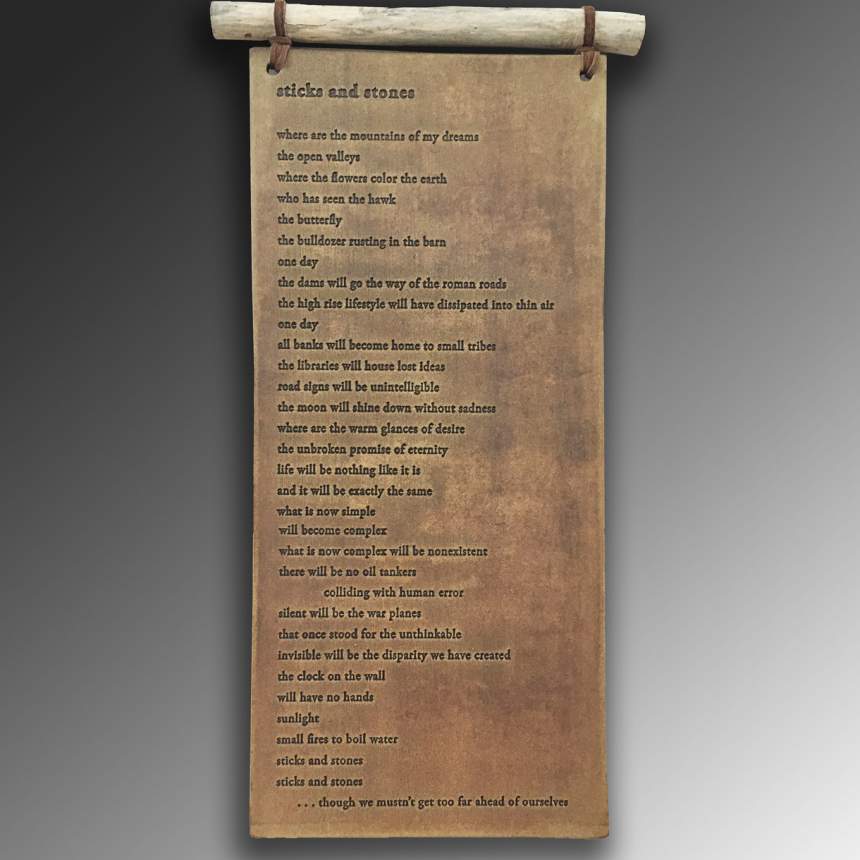 sticks and stones
where are the mountains of my dreams
the open valleys
where the flowers color the earth
who has seen the hawk
the butterfly
the bulldozer rusting in the barn
one day
the dams will go the way of the roman roads
the high rise lifestyle will have dissipated into thin air
one day
all banks will become home to small tribes
the libraries will house lost ideas
road signs will be unintelligible
the moon will shine down without sadness
where are the warm glances of desire
the unbroken promise of eternity
life will be nothing like it is
and it will be exactly the same
what is now simple
will become complex
what is now complex will be nonexistent
there will be no oil tankers
colliding with human error
silent will be the war planes
that once stood for the unthinkable
invisible will be the disparity we have created
the clock on the wall
will have no hands
sunlight
small fires to boil water
sticks and stones
sticks and stones
. . . though we mustn't get too far ahead of ourselves